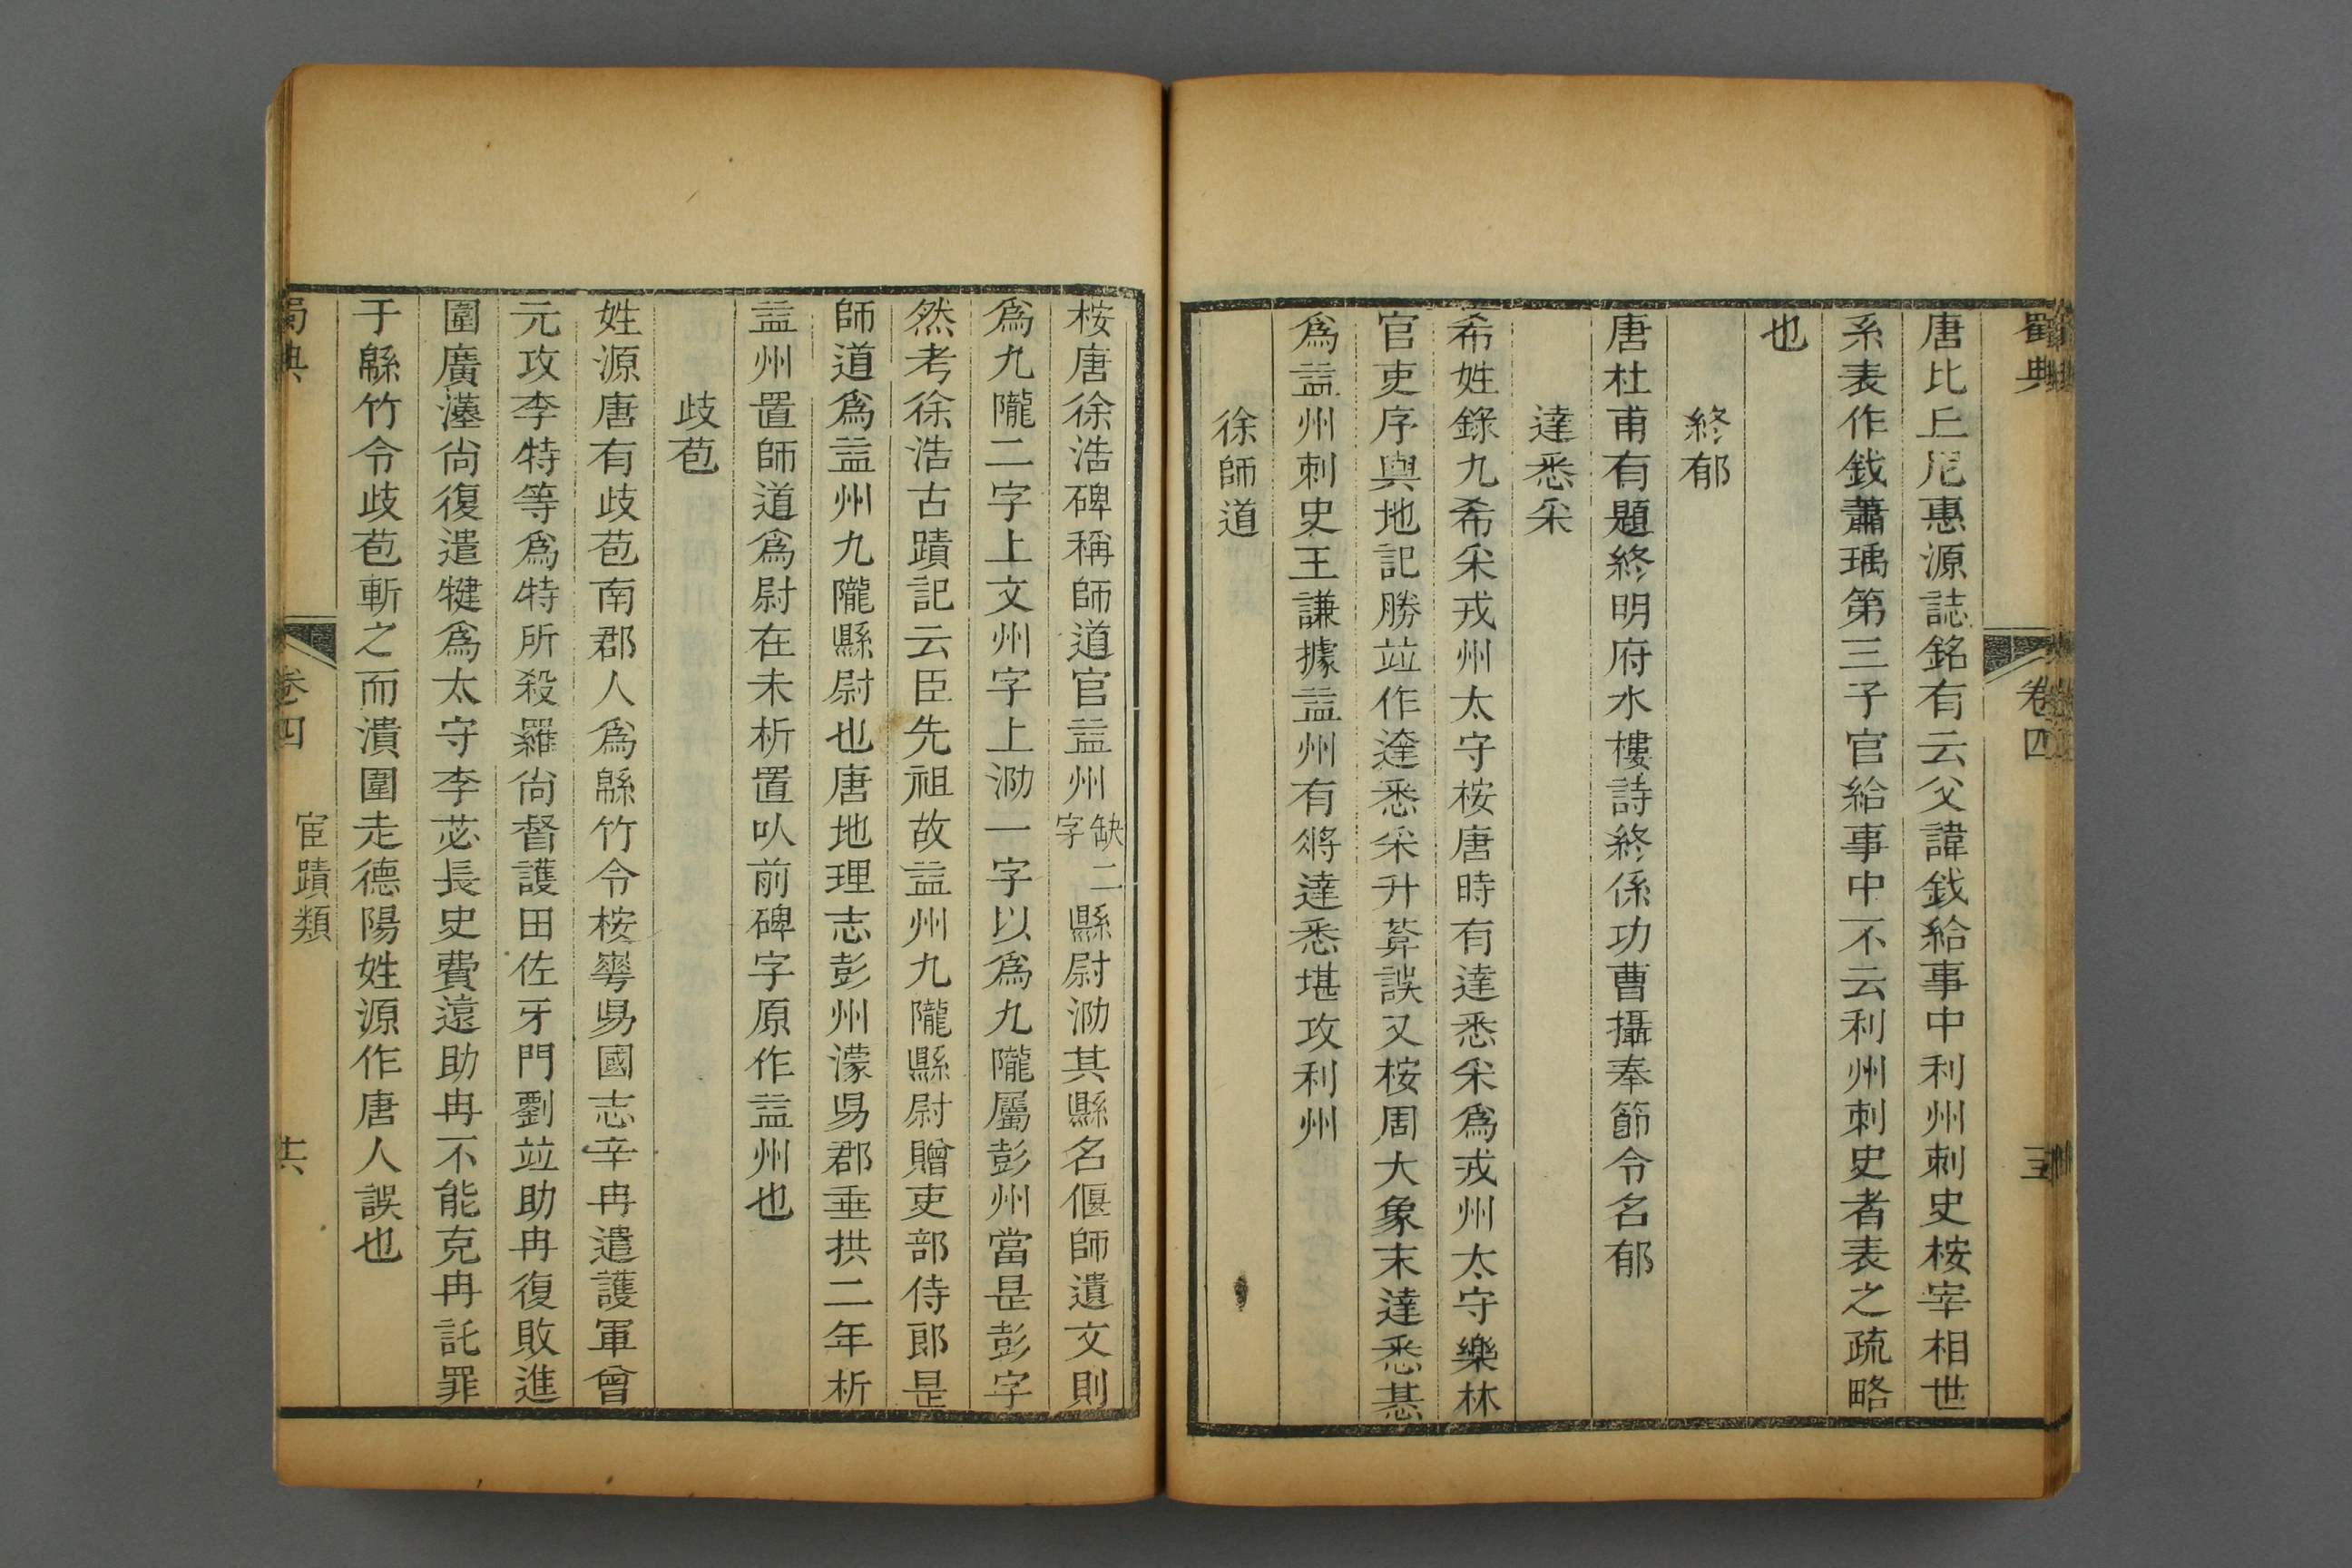 蜀典
卷四
唐比丘尼惠源誌銘有云父諱鈛給事中利州刺史桉宰相世
系表作鈛蕭瑀第三子官給事中不云利州刺史者表之疏略
也
終郁
唐杜甫有題終明府水樓詩終係功曹攝奉節令名郁
達悉釆
希姓錄九希釆戎州太守桉唐時有達悉釆爲戎州太守樂林
官吏序與地記勝竝作逹悉釆升葊誤又桉周大象末達悉惎
爲益州刺史王謙據益州有將達悉堪攻利州
徐師道
桉唐徐浩碑稱師道官益州缺二字縣尉泐其縣名偃師遺文則
爲九隴二字上文州字上泐一字以爲九隴屬彭州當是彭字
然考徐浩古蹟記云臣先祖故益州九隴縣尉贈吏部侍郎是
師道爲益州九隴縣尉也唐地理志彭州濛昜郡垂拱二年析
益州置師道爲尉在未析置㕥前碑字原作益州也
歧苞
姓源唐有歧苞南郡人爲緜竹令桉崋昜國志辛冉遣護軍曾
元攻李特等爲特所殺羅尙督護田佐牙門劉竝助冉復敗進
圍廣漢尙復遣犍爲太守李苾長史費遠助冉不能克冉託罪
于緜竹令歧苞斬之而潰圍走德陽姓源作唐人誤也
蜀典
卷四
宦蹟類